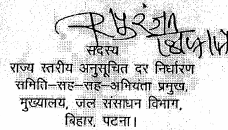 सदस्य
राज्य स्तरीय अनुसूचित दर निर्धारण
समिति–सह–सह–अभियंता प्रमुख,
मुख्यालय, जल संसाधन विभाग,
बिहार, पटना।